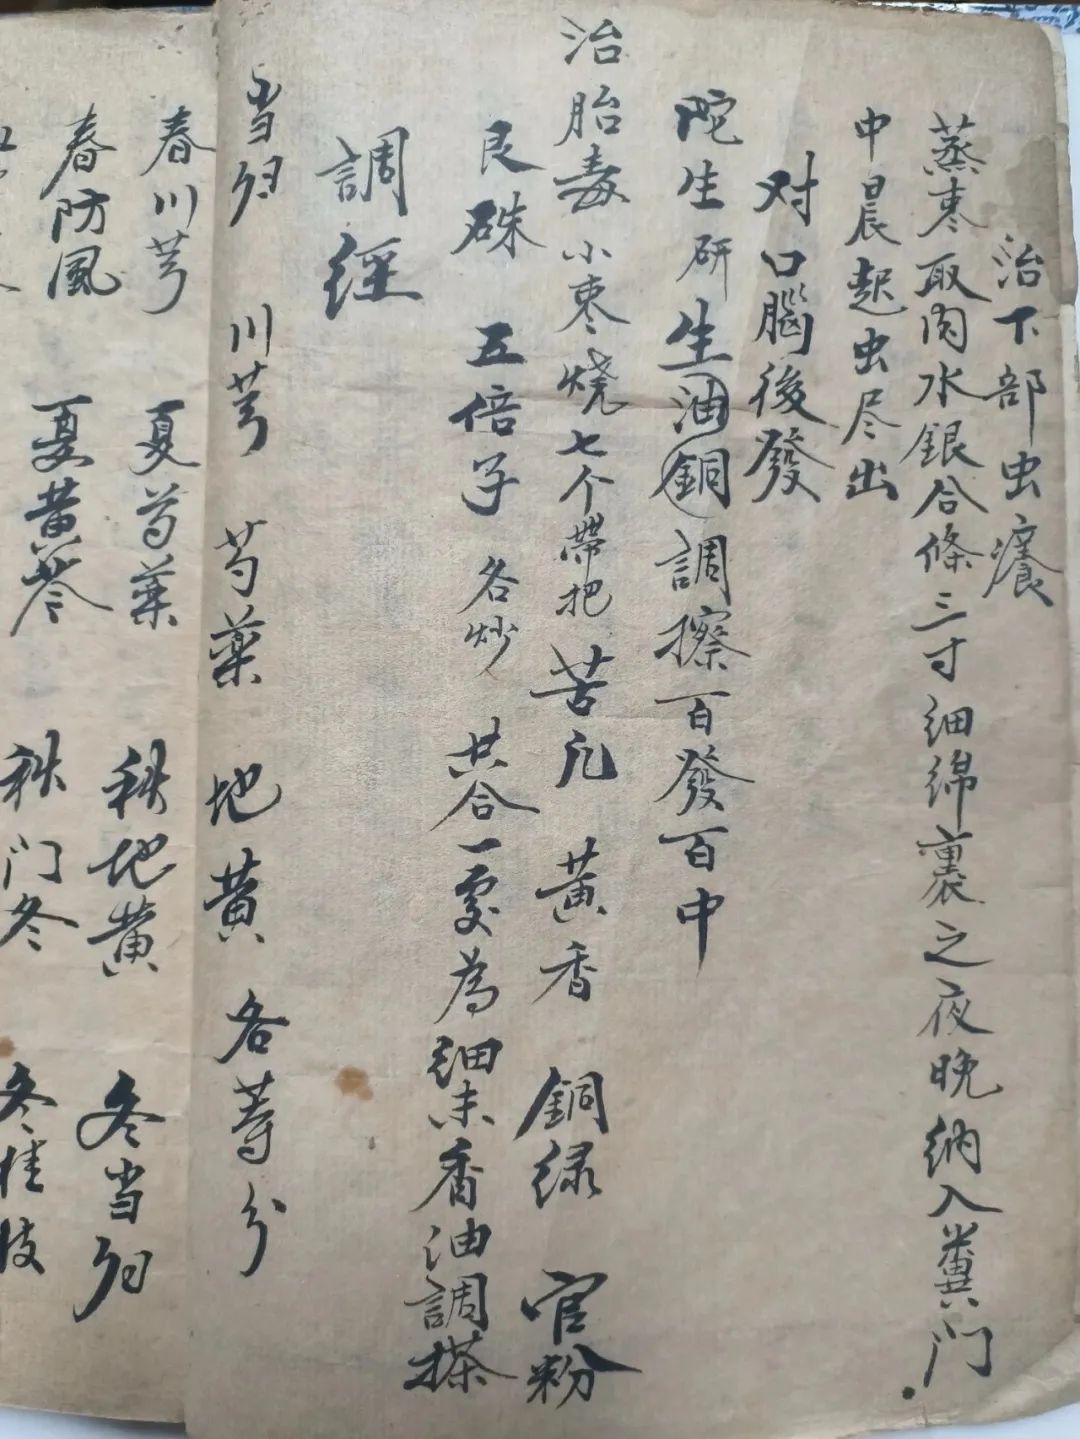 治下部虫癢
蒸枣取肉水銀合條三寸细綿裏之夜晚纳入糞门
中晨起虫尽出
对口腦後發
陀生研生油銅調擦百發百中
治胎毒小枣烧七个帶把苦凡 黃香 銅绿 官粉
艮硃 五倍子 各炒 共合一處為細末香油調搽
調经
当归 川芎 芍藥 地黄 各等分
春川芎 夏芍药 秋地黄 冬当归
春防風 夏黄芩 秋门冬 冬桂枝